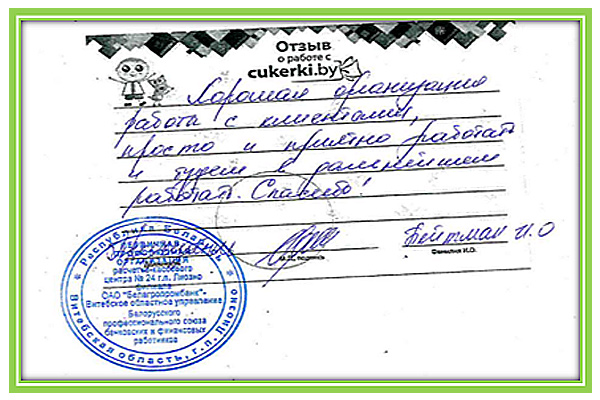 Отзыв
о работе с
cukerki.by
Хорошая организация
работы с клиентами,
просто и приятно работать
и будем в дальнейшем
работать. Спасибо!
М.П., подпись
Фамилия И.О.
Бейтман И.О
Республика Беларусь
первичная
профсоюзная
организация
расчетно-кассового
центра № 24 г.п. Лиозно
филиала
ОАО "Белагропромбанк"-
Витебское областное управление
Белорусского
профессионального союза
банковских и финансовых
работников
Витебская область, г.п. Лиозно